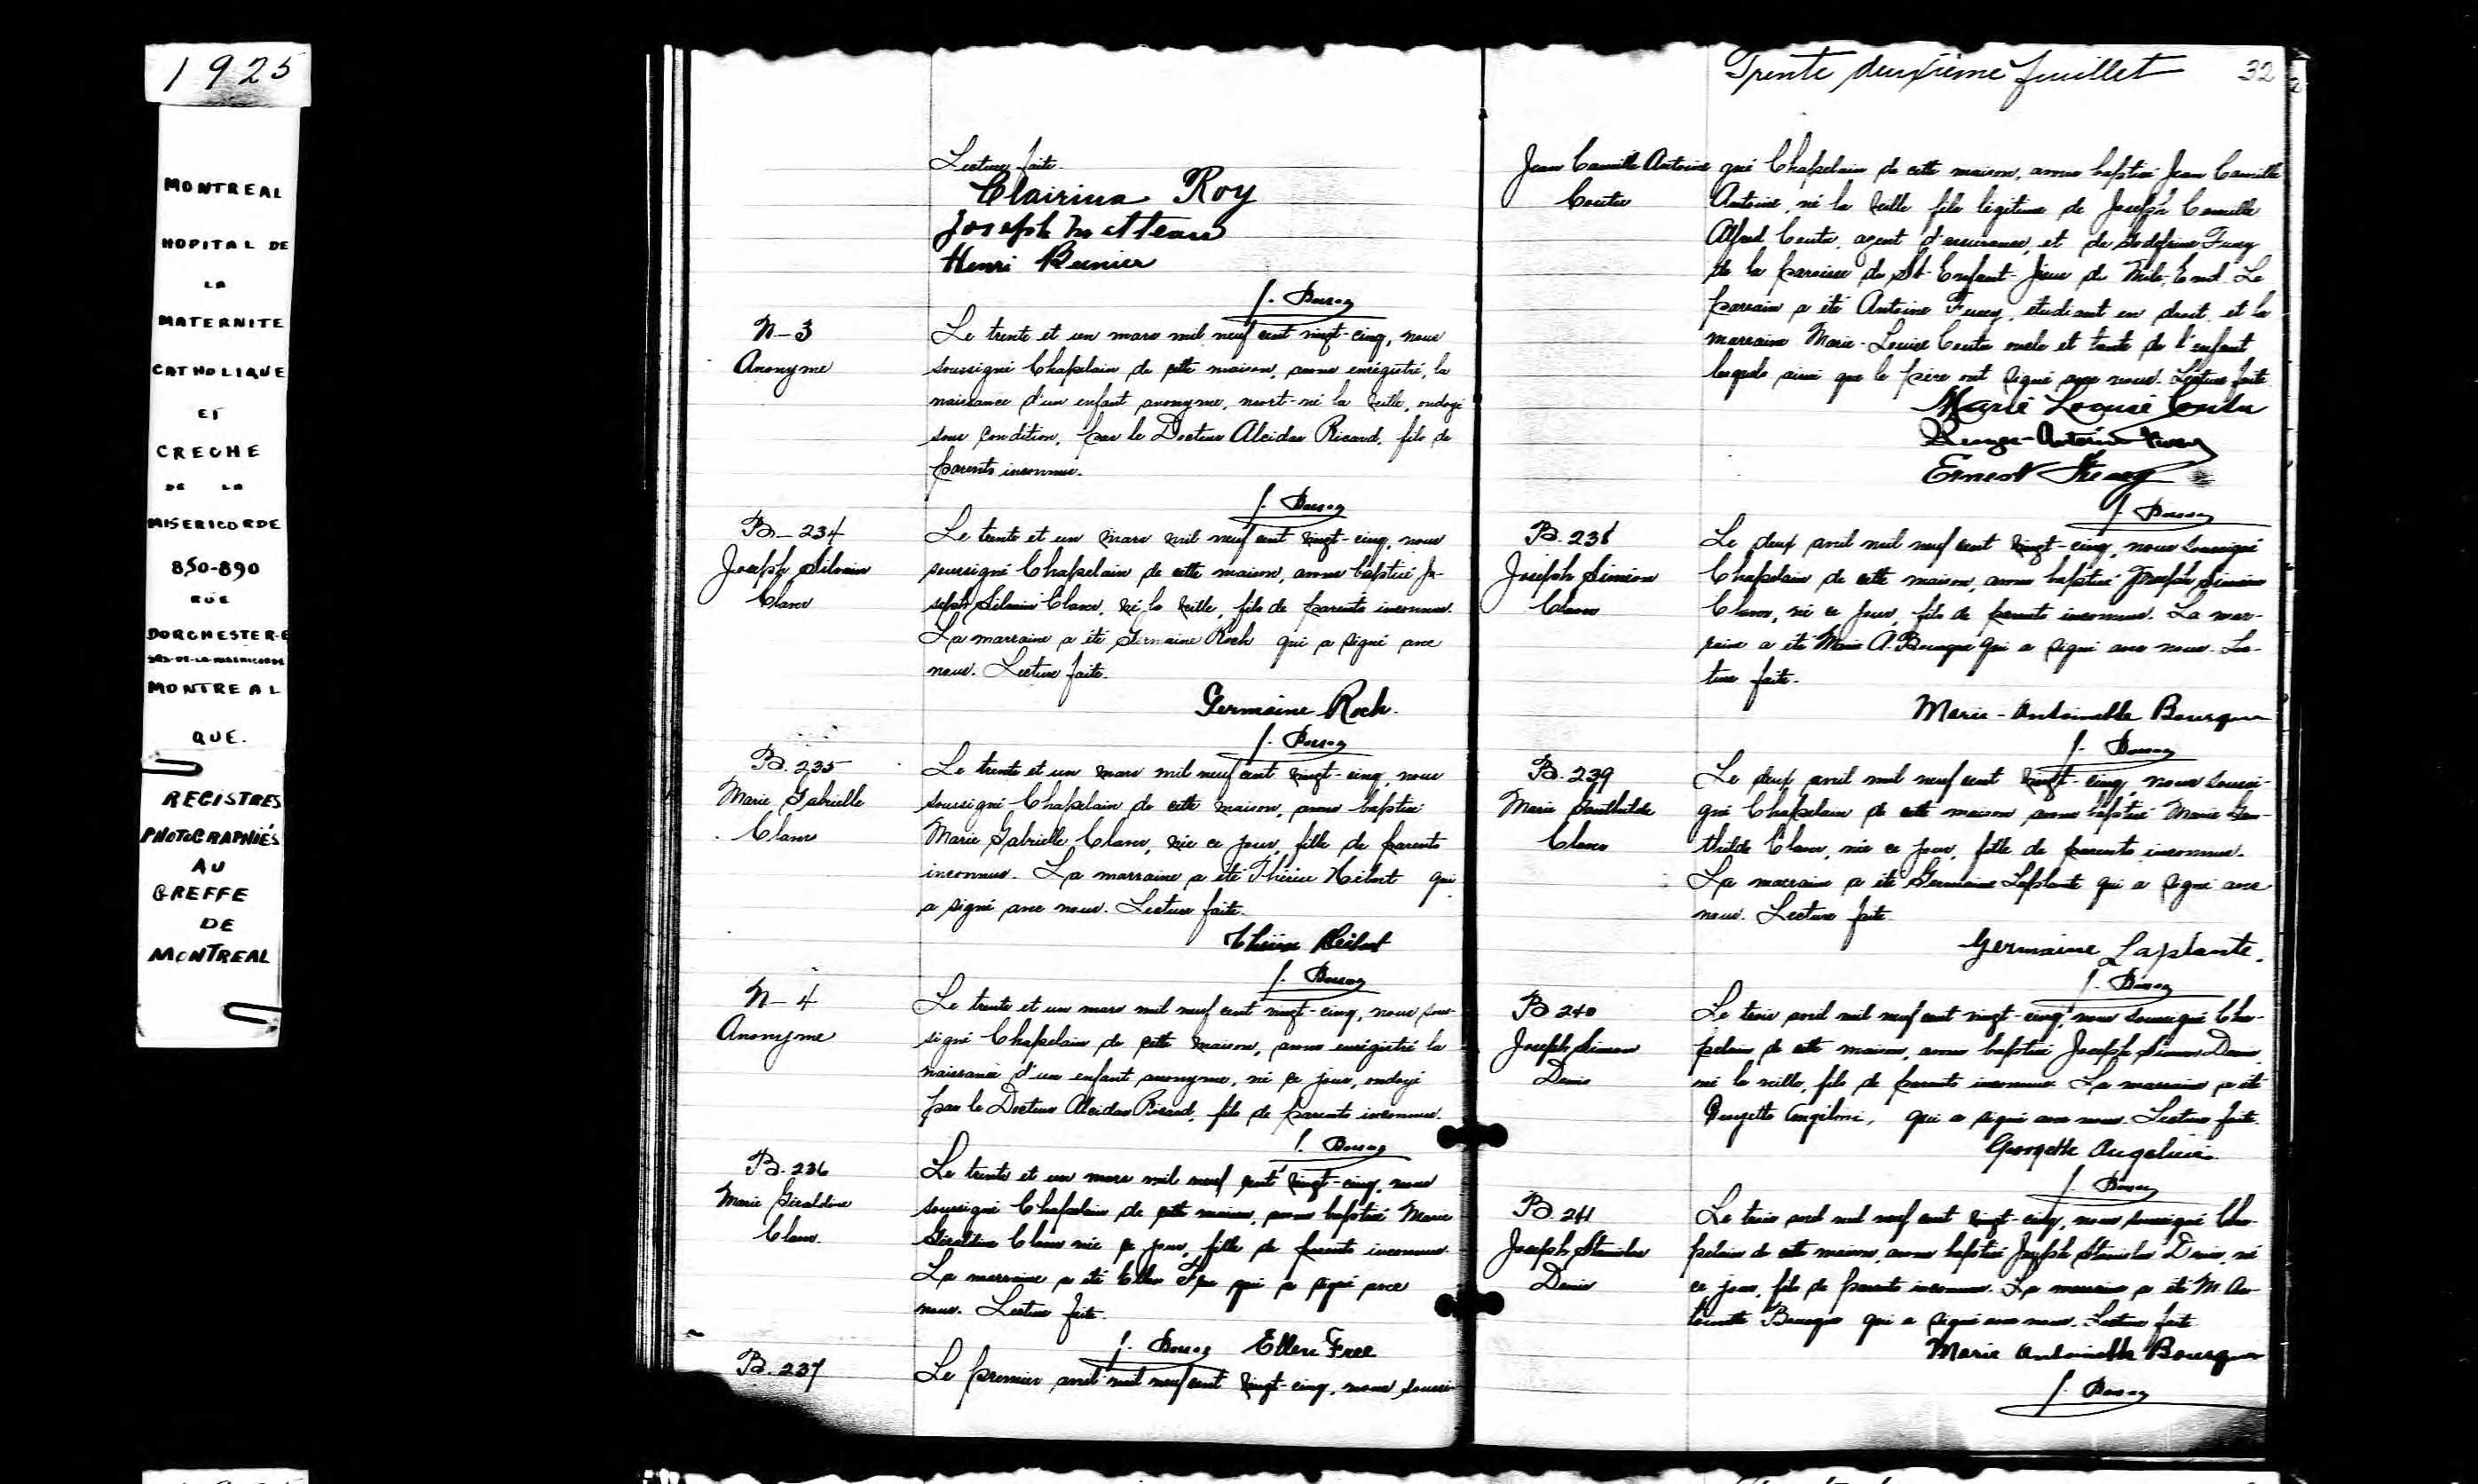 1925
MONTREAL
HOPITAL DE
LA
MATERNITE
CATHOLIQUE
ET
CRECHE
DE LA
MISERICORDE
850-890
RUE
DORCHESTER-E
MONTREAL
QUE.
REGISTRES
PHOTOGRAPHIÉS
AU
GREFFE
DE
MONTREAL
Lecture faite.
Clairina Roy
Joseph
Henri
N-3
Anonyme
Le trente et un mars mil neuf cent vingt-cinq, nous
soussigné Chapelain de cette maison, avons enrégistré, la
naissance d'un enfant anonyme, mort-né la veille, ondoyé
sous condition, par le Docteur Alcidas Ricard, fils de
parents inconnus.
B-234
Joseph Silvain
Le trente et un mars mil neuf cent vingt-cinq, nous
soussigné Chapelain de cette maison, avons baptisé Jo-
seph Silvain né la veille, fils de parents inconnus.
La marraine a été Germaine Roch qui a signé avec
nous. Lecture faite.
Germaine Roch.
B. 235
Marie Gabrielle
Le trente et un mars mil neuf cent vingt-cinq, nous
soussigné Chapelain de cette maison, avons baptisé
Marie Gabrielle née ce jour, fille de parents
inconnus. La marraine a été Thérèse Hébert qui
a signé avec nous. Lecture faite.
Thérèse Hébert
N-4
Anonyme
Le trente et un mars mil neuf cent vingt-cinq, nous sous-
signé Chapelain de cette maison, avons enrégistré la
naissance d'un enfant anonyme, né ce jour, ondoyé
par le Docteur Alcidas Ricard, fils de parents inconnus.
B. 236
Marie Géraldine
Le trente et un mars mil neuf cent vingt-cinq, nous
soussigné Chapelain de cette maison, avons baptisé Marie
Géraldine née ce jour, fille de parents inconnus.
La marraine a été Ellen Free qui a signé avec
nous. Lecture faite.
Ellen Free
B. 237
Le premier avril mil neuf cent vingt-cinq, nous soussi-
Trente deuxième feuillet 32
Jean Camille Antoine
gné Chapelain de cette maison, avons baptisé Jean Camille
Antoine, né la veille fils légitime de Joseph Camille
Alfred agent d'assurance, et de
de la paroisse du St-Enfant-Jésus du Mile-End. Le
parrain a été Antoine étudiant en droit, et la
marraine Marie-Louise oncle et tante de l'enfant
lesquels ainsi que le père ont signé avec nous. Lecture faite.
Marie Louise
Ernest
B. 238
Joseph Siméon
Le deux avril mil neuf cent vingt-cinq, nous soussigné
Chapelain de cette maison, avons baptisé Joseph Siméon
né ce jour, fils de parents inconnus. La mar-
raine a été Marie A. Bourque qui a signé avec nous. Lec-
ture faite.
Marie-Antoinette Bourque
B. 239
Marie Gonthilde
Le deux avril mil neuf cent vingt-cinq, nous soussi-
gné Chapelain de cette maison avons baptisé Marie Gon-
thilde née ce jour, fille de parents inconnus.
La marraine a été Germaine Laplante qui a signé avec
nous. Lecture faite.
Germaine Laplante.
B. 240
Joseph Simon
Denis
Le trois avril mil neuf cent vingt-cinq, nous soussigné Cha-
pelain de cette maison, avons baptisé Joseph Simon Denis
né la veille, fils de parents inconnus. La marraine a été
Georgette qui a signé avec nous. Lecture faite.
Georgette
B. 241
Joseph Stanislas
Denis
Le trois avril mil neuf cent vingt-cinq, nous soussigné Cha-
pelain de cette maison, avons baptisé Joseph Stanislas Denis, né
ce jour, fils de parents inconnus. La marraine a été M. An-
toinette Bourque qui a signé avec nous. Lecture faite.
Marie Antoinette Bourque